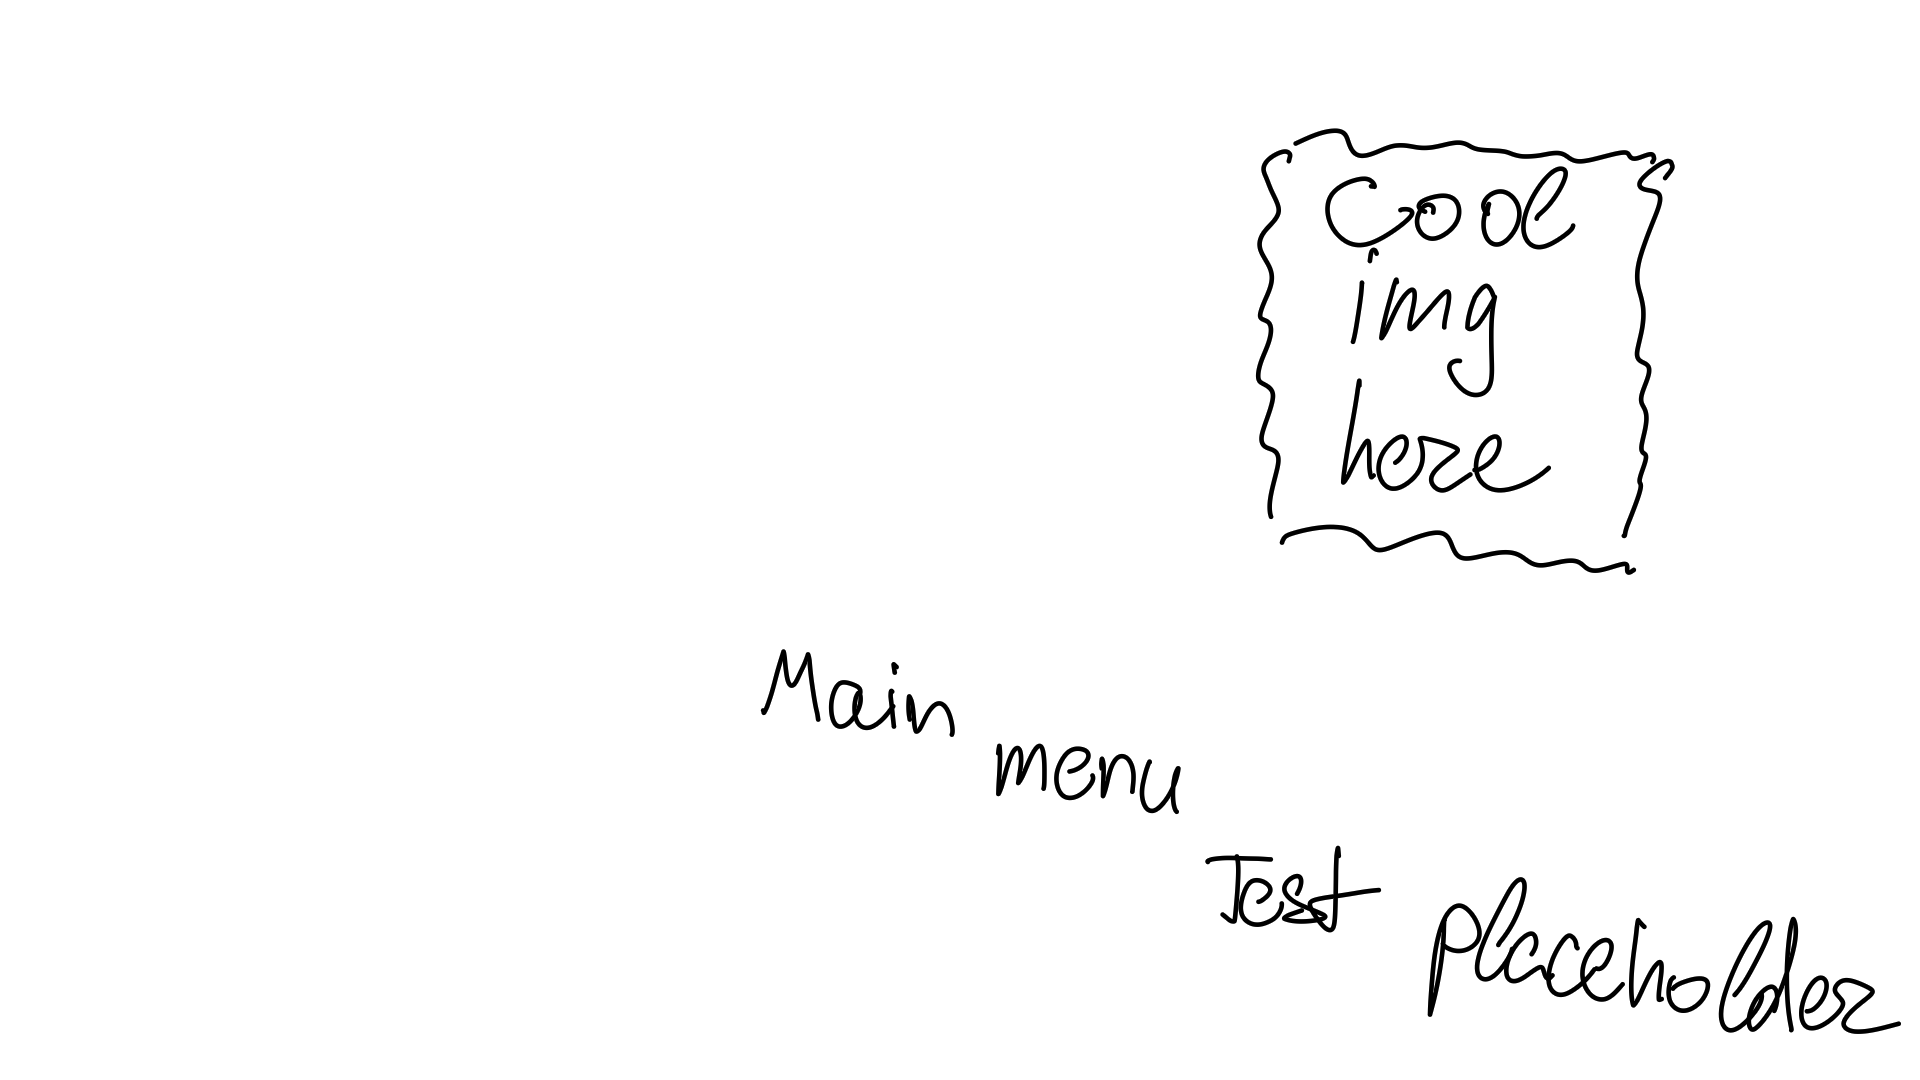 Cool
img
here
Main
menu
Test
placeholder